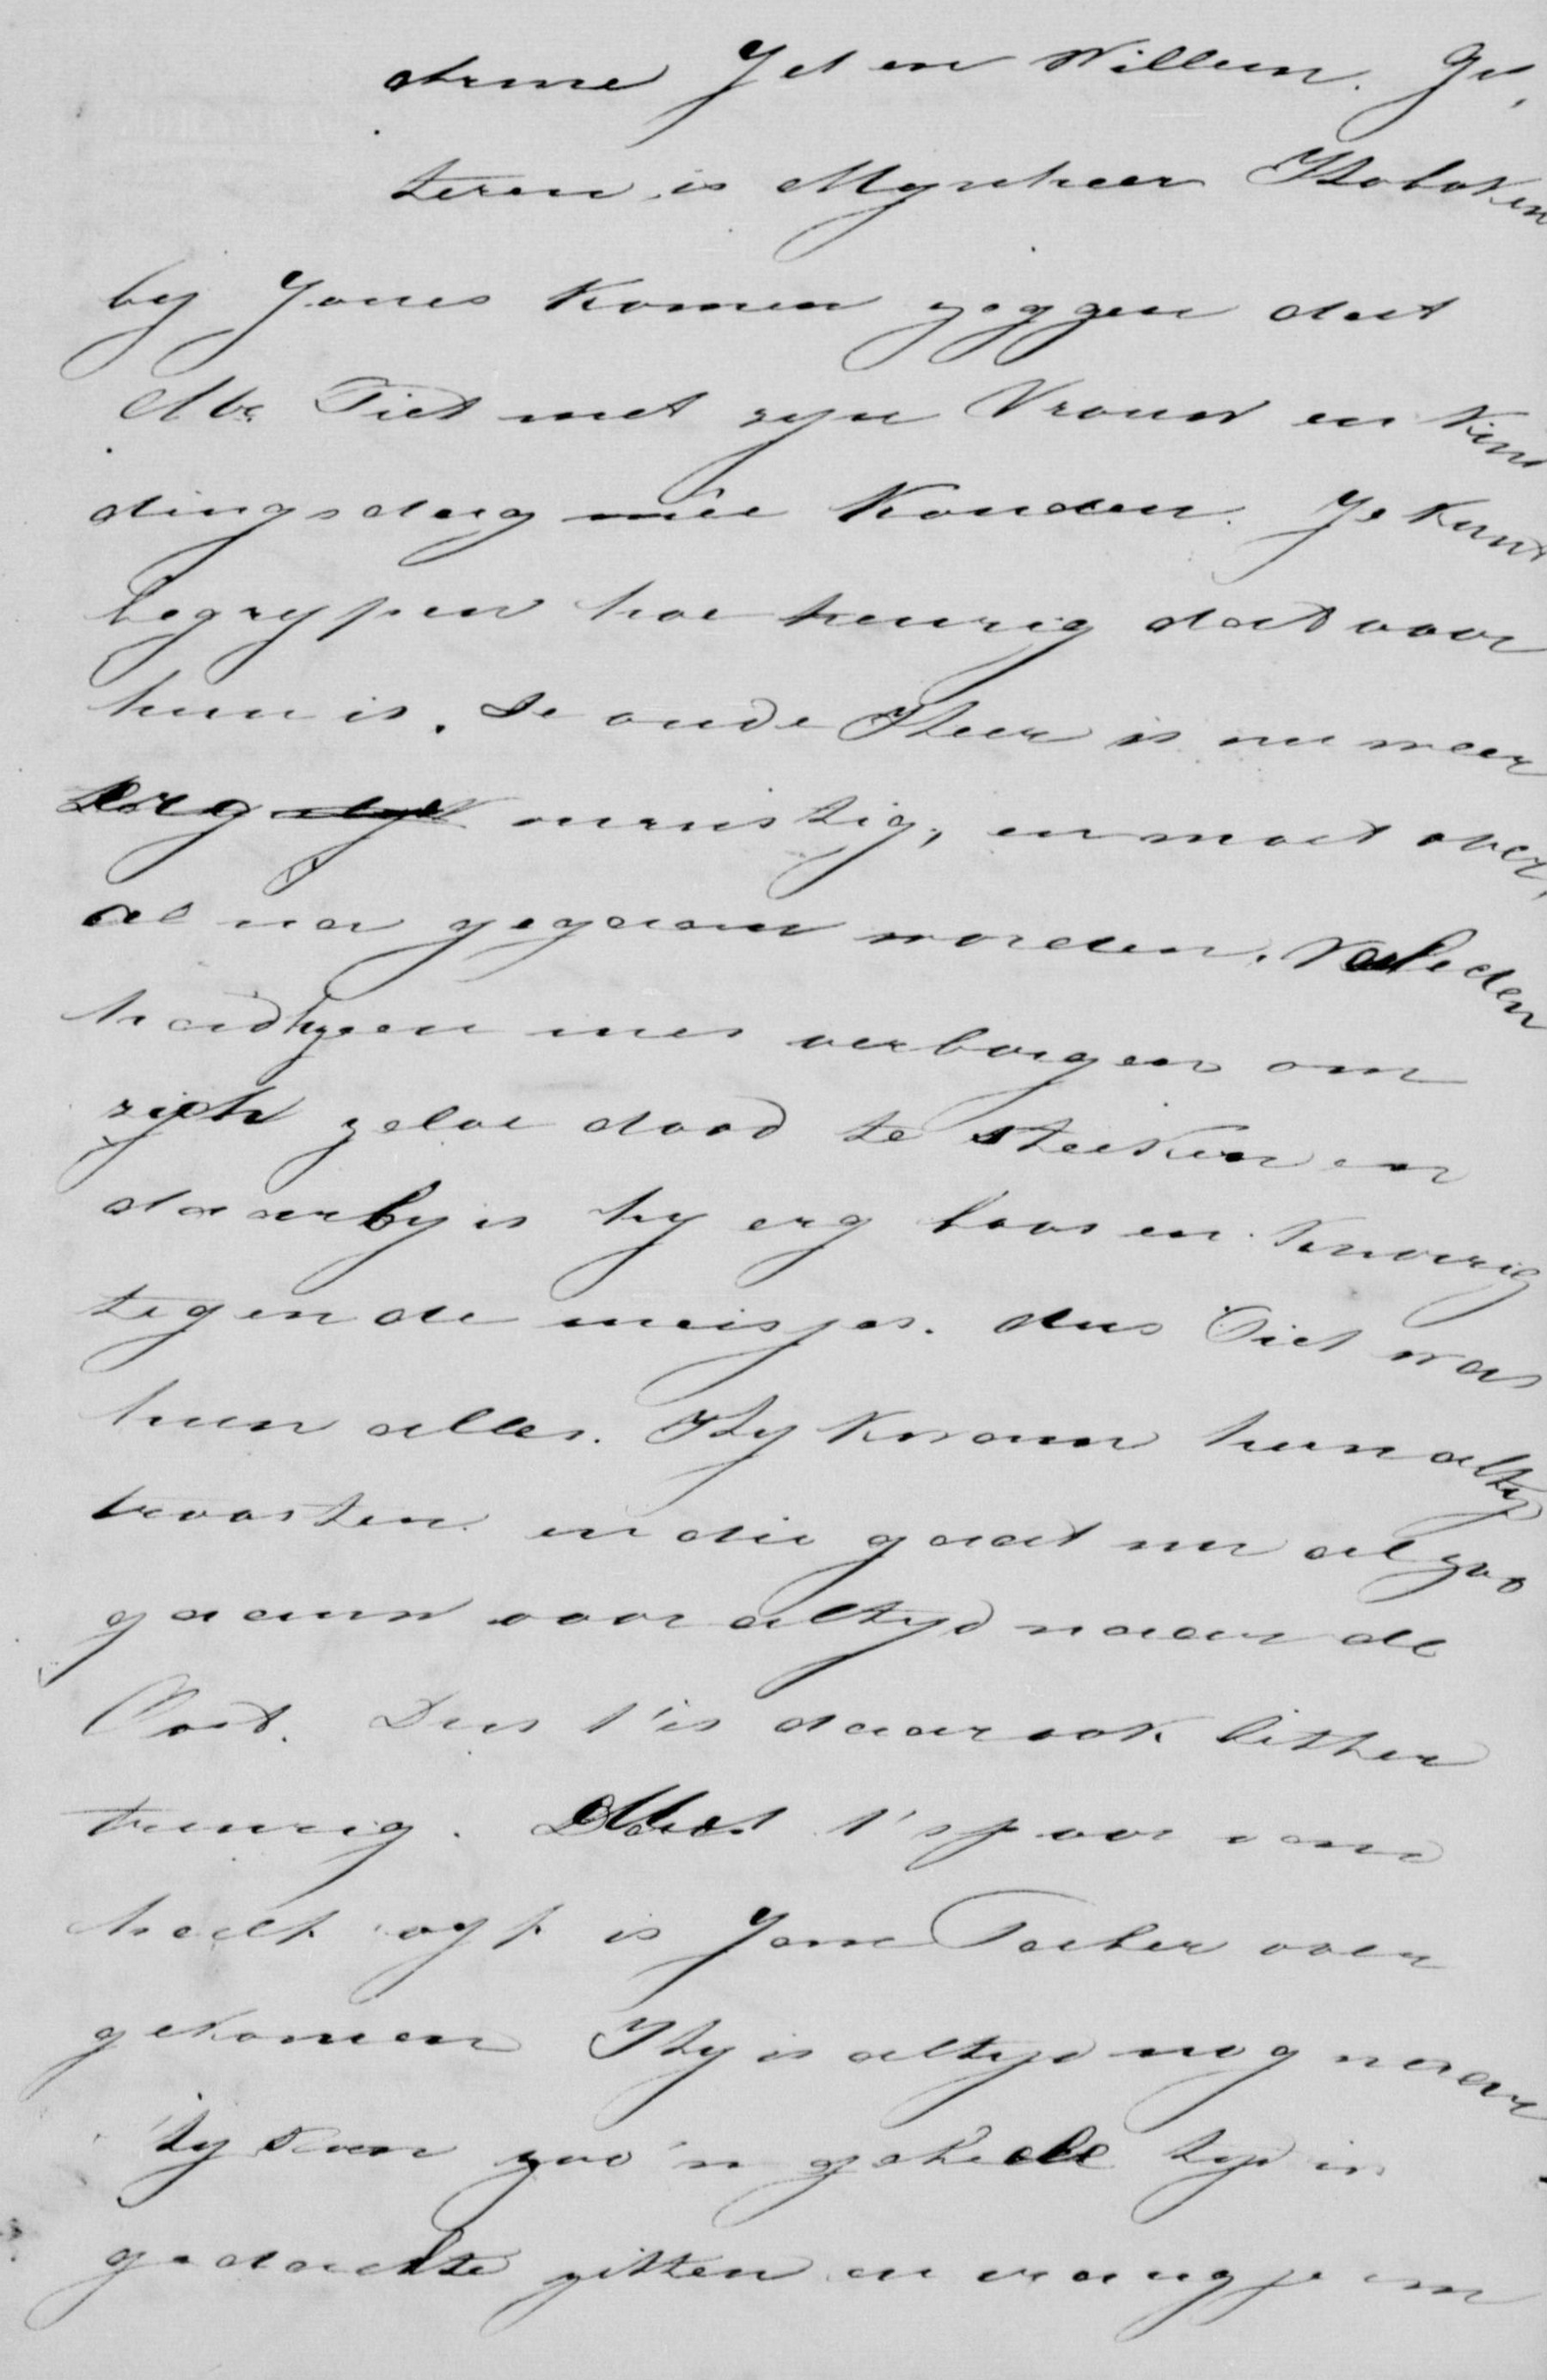 Arme Jet en Willem. Gis,
teren is Mynheer Hoboken
by Jones komen zeggen dat
Mr. Piet met zyn Vrouw en kind
dingsdag mêe konden. Je kunt
begrypen hoe treurig dat voor
hun is. De oude Heer is nu weer
erg onrustig, en moet over,
al na gegaan worden. Verleden
had hy een mes verborgen om
zich zelve dood te steeken en
daarby is hy erg boos en knorrig
tegen de meisjes. dus Piet was
hun alles. Hy kwam hun altyd
troosten en die gaat nu al zoo
gaauw voor altyd naar de
Oost. Dus t'is daar ook bitter
treurig. Met t'spoor van
half is Jan over
gekomen Hy is altyd nog naar
hy kan zoo'n geheele tyd in
gedachte zitten en vraag je em